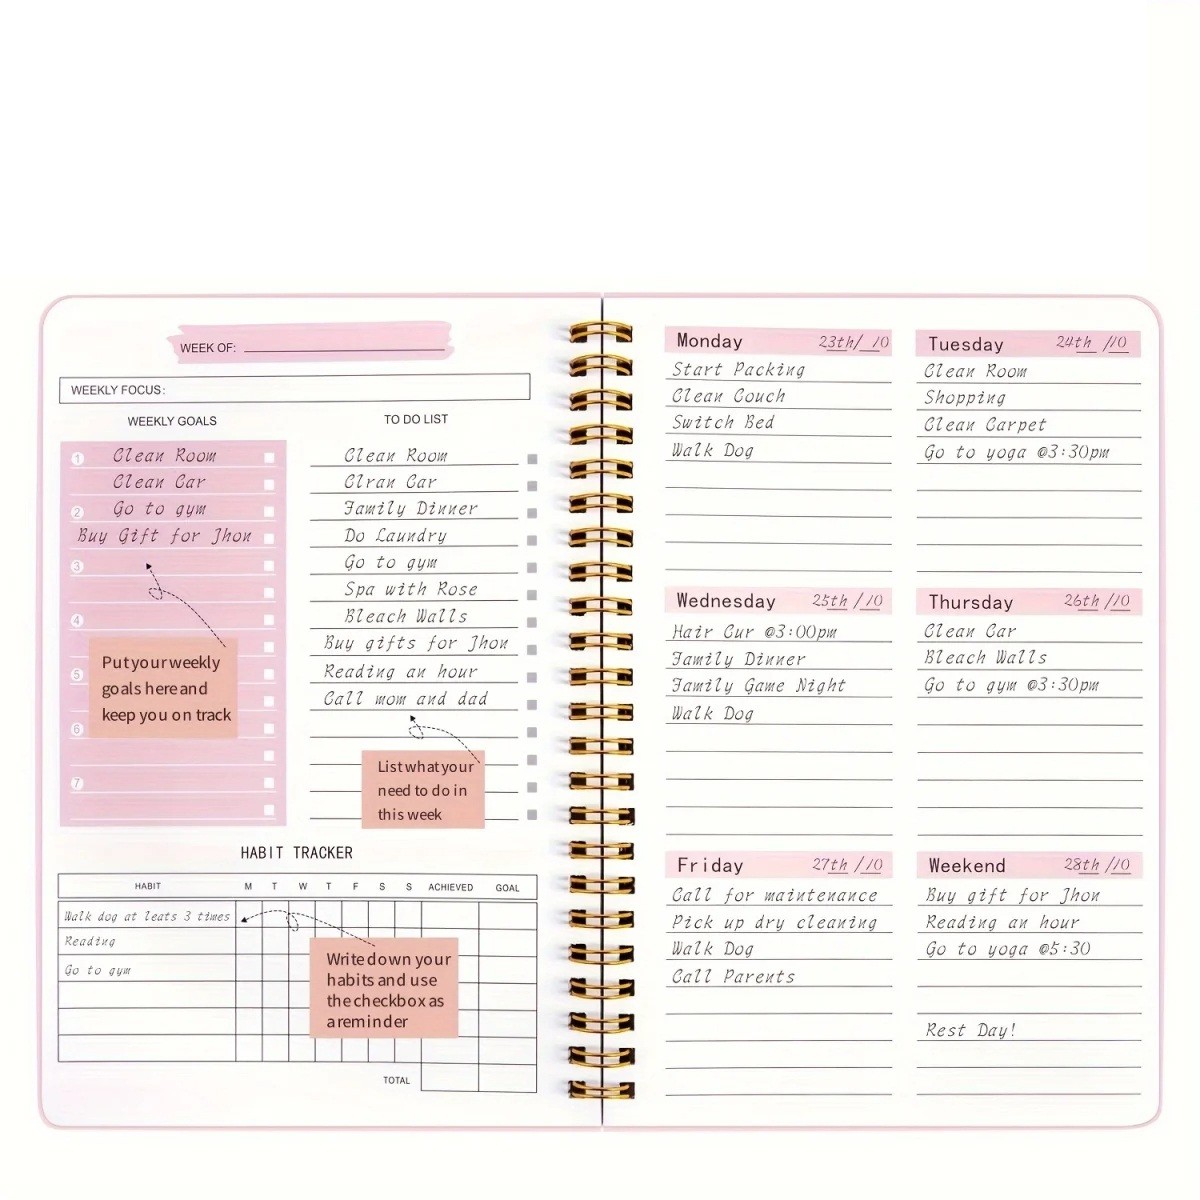 WEEK OF:
WEEKLY FOCUS:
WEEKLY GOALS
1 Clean Room
Clean Car
2 Go to gym
Buy Gift for Jhon
3
4
5
6
7
Put your weekly
goals here and
keep you on track
TO DO LIST
Clean Room
Clran Car
Family Dinner
Do Laundry
Go to gym
Spa with Rose
Bleach Walls
Buy gifts for Jhon
Reading an hour
Call mom and dad
List what your
need to do in
this week
HABIT TRACKER
HABIT M T W T F S S ACHIEVED GOAL
Walk dog at leats 3 times
Reading
Go to gym
Write down your
habits and use
the checkbox as
a reminder
TOTAL
Monday 23th/ 10
Start Packing
Clean Couch
Switch Bed
Walk Dog
Tuesday 24th /10
Clean Room
Shopping
Clean Carpet
Go to yoga @3:30pm
Wednesday 25th /10
Hair Cur @3:00pm
Family Dinner
Family Game Night
Walk Dog
Thursday 26th /10
Clean Car
Bleach Walls
Go to gym @3:30pm
Friday 27th /10
Call for maintenance
Pick up dry cleaning
Walk Dog
Call Parents
Weekend 28th /10
Buy gift for Jhon
Reading an hour
Go to yoga @5:30
Rest Day!